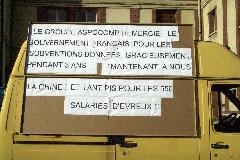 LE GROUPE ASPOCOMP REMERCIE LE
GOUVERNEMENT FRANCAIS POUR LES
SUBVENTIONS DONNEES GRACIEUSEMENT
PENDANT 3 ANS MAINTENANT A NOUS
LA CHINE ET TANT PIS POUR LES 550
SALARIES D'EVREUX !